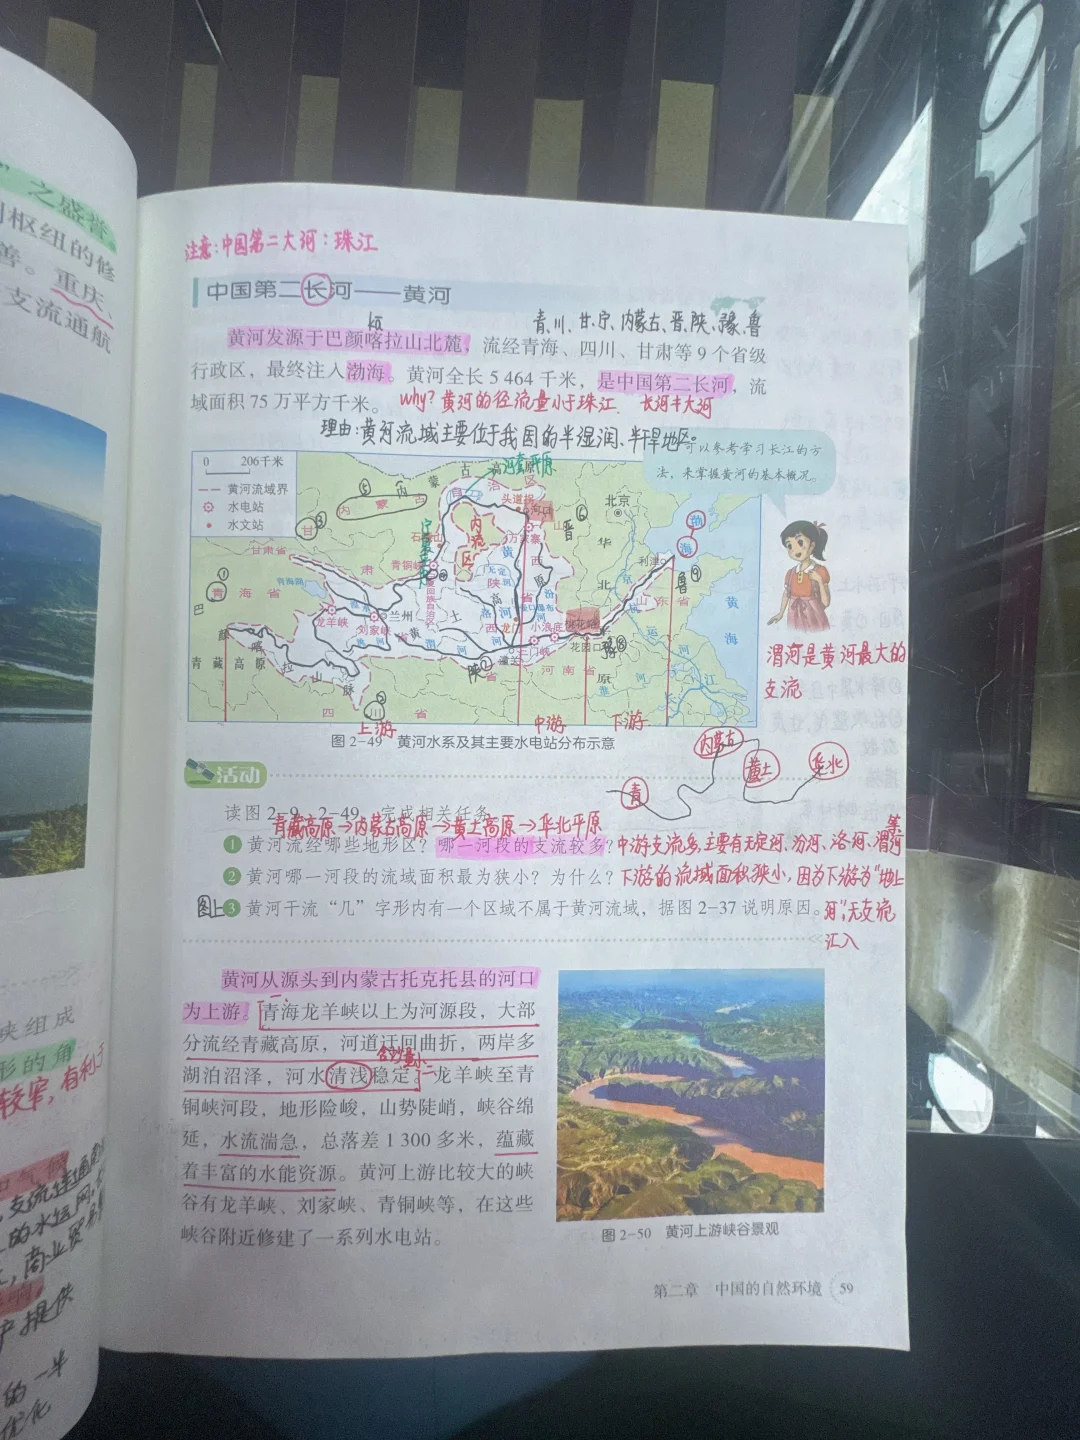 ”之盛誉。
枢纽的修
善。重庆、
支流通航
峡组成
形的角
较窄，有利于
注意：中国第二大河：珠江
中国第二长河——黄河
青、川、甘、宁、内蒙古、晋、陕、豫、鲁
黄河发源于巴颜喀拉山北麓，流经青海、四川、甘肃等 9 个省级
行政区，最终注入渤海。黄河全长 5 464 千米，是中国第二长河，流
域面积 75 万平方千米。 why？黄河的径流量小于珠江. 长河≠大河
理由：黄河流域主要位于我国的半湿润、半干旱地区。
可以参考学习长江的方
法，来掌握黄河的基本概况。
0 206千米
黄河流域界
水电站
水文站
河套平原
内流区
头道拐
河口
北京
万家寨
石嘴山
青铜峡
甘肃省
青海省
青海湖
龙羊峡
刘家峡
兰州
利津
山东省
渤海
黄海
龙门
小浪底
三门峡
潼关
花园口
河南省
青藏高原
四川省
上游
中游
下游
渭河是黄河最大的
支流
图 2-49 黄河水系及其主要水电站分布示意
青
内蒙古
黄土
华北
活动
读图 2-9、2-49，完成相关任务。
青藏高原→内蒙古高原→黄土高原→华北平原
1 黄河流经哪些地形区？哪一河段的支流较多？中游支流多，主要有无定河、汾河、洛河、渭河等
2 黄河哪一河段的流域面积最为狭小？为什么？下游的流域面积狭小，因为下游为“地上
图上 3 黄河干流“几”字形内有一个区域不属于黄河流域，据图 2-37 说明原因。河”，无支流
汇入
黄河从源头到内蒙古托克托县的河口
为上游。青海龙羊峡以上为河源段，大部
分流经青藏高原，河道迂回曲折，两岸多
含沙量小
湖泊沼泽，河水清浅稳定。龙羊峡至青
铜峡河段，地形险峻，山势陡峭，峡谷绵
延，水流湍急，总落差 1 300 多米，蕴藏
着丰富的水能资源。黄河上游比较大的峡
谷有龙羊峡、刘家峡、青铜峡等，在这些
峡谷附近修建了一系列水电站。
图 2-50 黄河上游峡谷景观
第二章 中国的自然环境 59